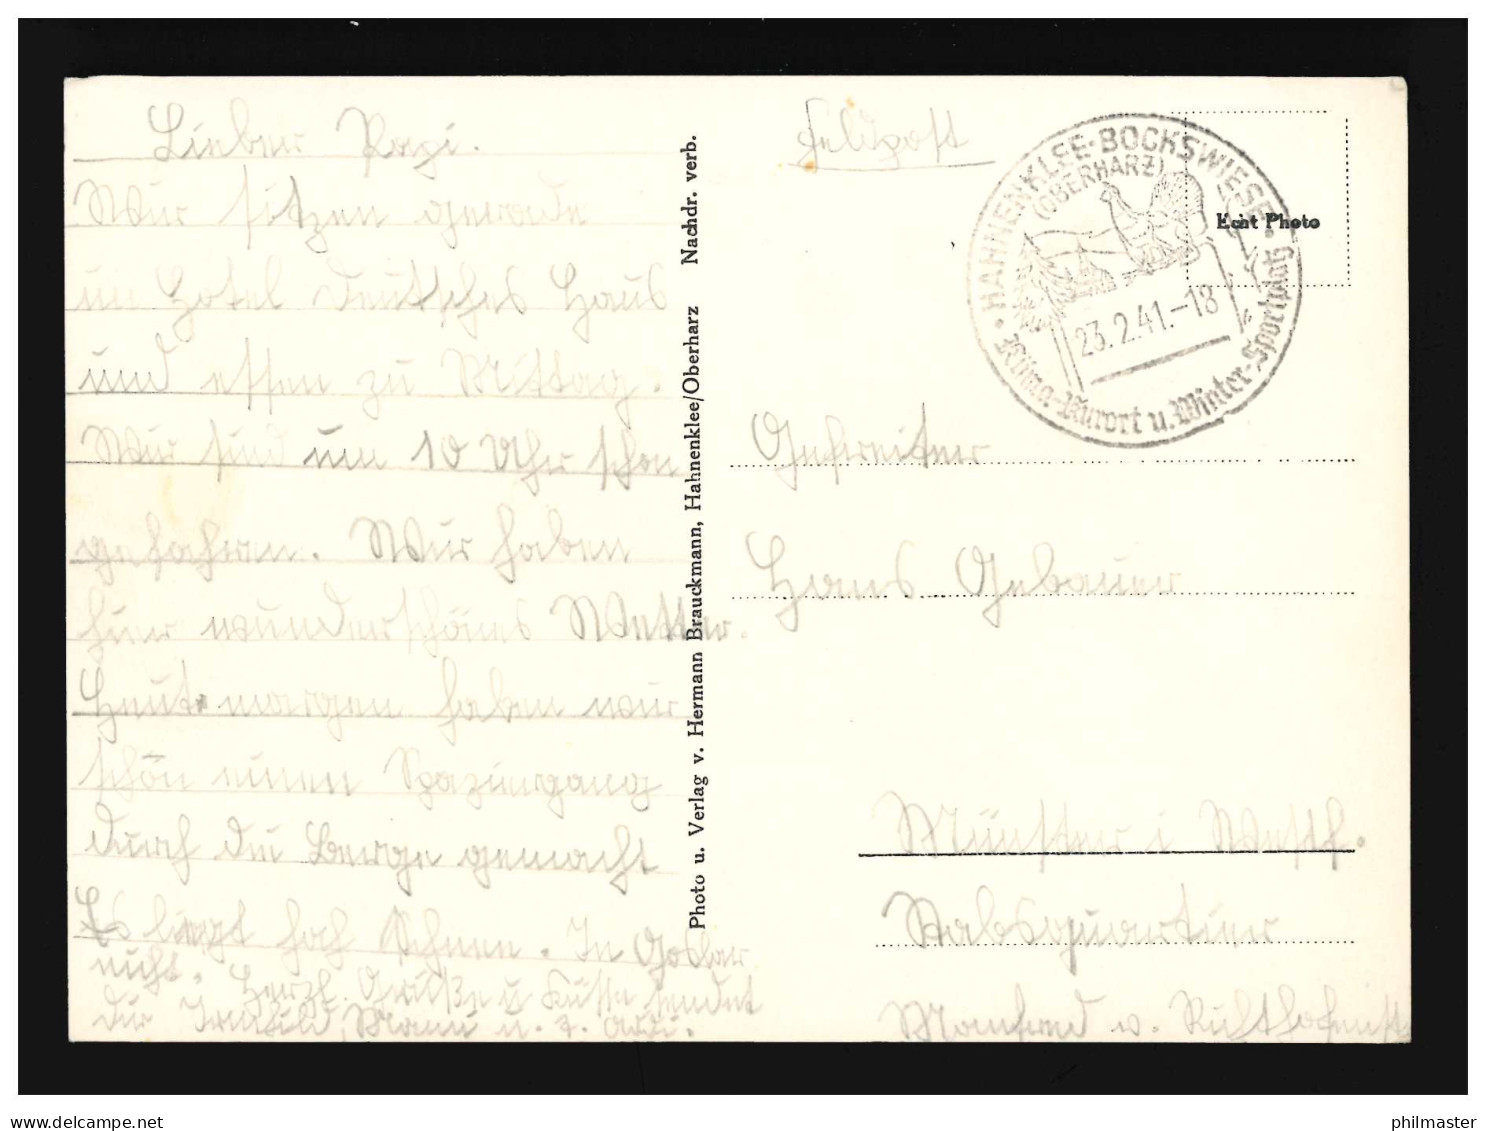 Lieber Papi.
Wir sitzen gerade
im Hotel Deutsches Haus
und essen zu Mittag.
Wir sind um 10 Uhr schon
gefahren. Wir haben
hier wunderschönes Wetter.
Heute morgen haben wir
schön einen Spaziergang
durch die Berge gemacht
Es liegt hoch Schnee. In Goslar
nicht. Herzl. Grüße u Küsse sendet
dir Mami u.
Photo u. Verlag v. Hermann Brauckmann, Hahnenklee/Oberharz Nachdr. verb.
Feldpost
HAHNENKLEE-BOCKSWIESE
(OBERHARZ)
23.2.41.-18
Klima-Kurort u. Winter-Sportplatz
Echt Photo
Gefreiter
Hans Gebauer
Münster i Westf.
Stabsquartier
Manfred v. Richthofenst
delcampe.net
philmaster